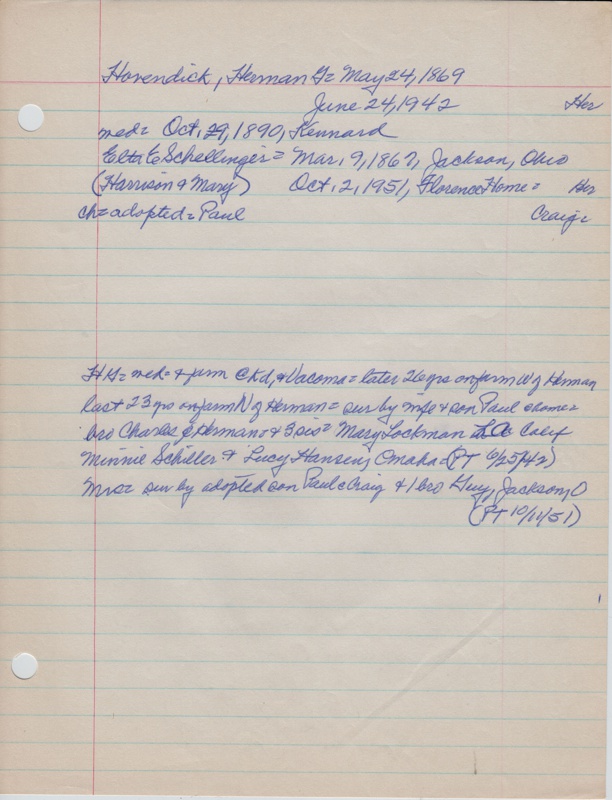 Hovendick, Herman G = May 24, 1869
June 24, 1942 Her
med = Oct. 29, 1890, Kennard
Elta E Schellinger = Mar. 9, 1867, Jackson, Ohio
(Harrison & Mary) Oct. 2, 1951, Florence Home = Her
ch = adopted = Paul Craig =
HG = med = & farm @ Kd, & Vacoma = later 26 yrs on farm W of Herman
last 23 yrs on farm N of Herman = sur by wife & son Paul @ home =
bro Charles of Herman & 3 sis = Mary Lockman LA Calif
Minnie Schiller & Lucy Hansen, Omaha = (PT 6/25/42)
Mrs = sur by adopted son Paul @ Craig & 1 bro Guy, Jackson, O
(PT 10/11/51)